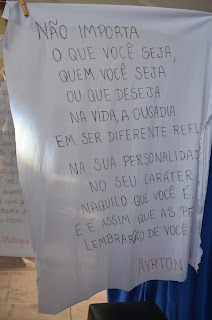 NÃO IMPORTA
O QUE VOCÊ SEJA,
QUEM VOCÊ SEJA
OU QUE DESEJA
NA VIDA, A OUSADIA
EM SER DIFERENTE REFL
NA SUA PERSONALIDAD
NO SEU CARÁTER
NAQUILO QUE VOCÊ É.
E É ASSIM QUE AS PE
LEMBRARÃO DE VOCÊ
AYRTON